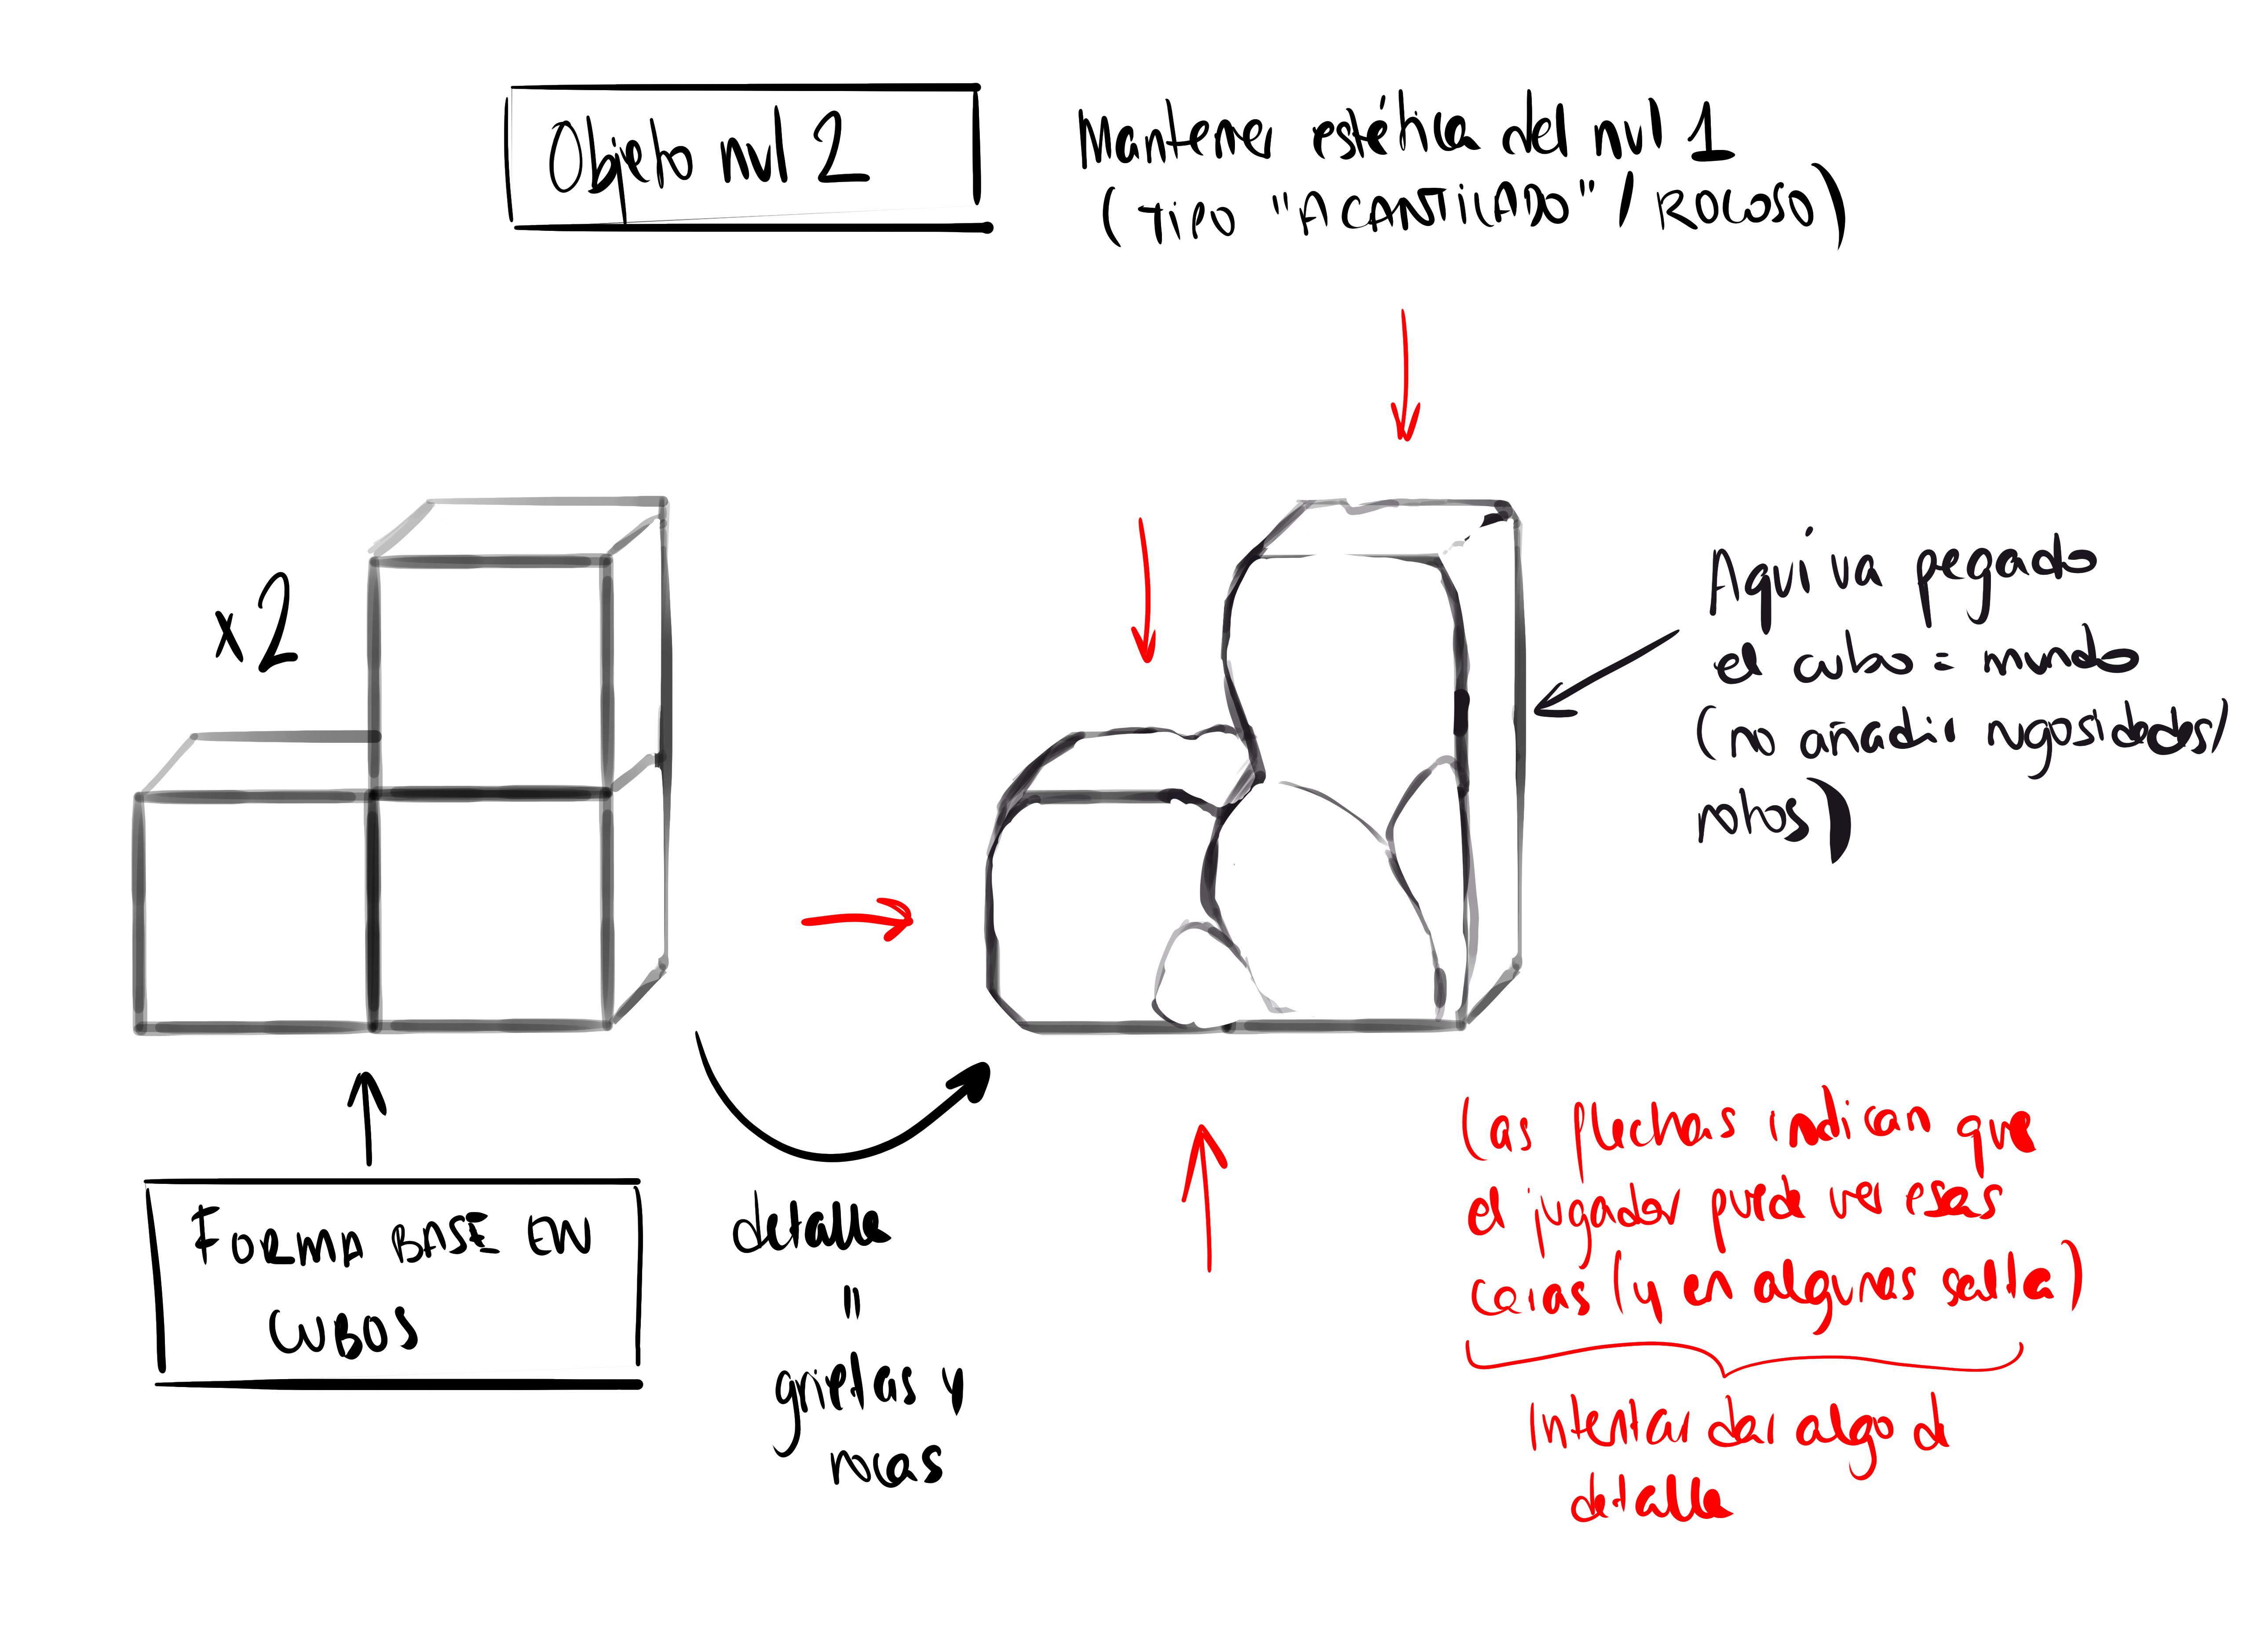 Objeto nvl 2
Mantener estética del nvl 1
(TIPO "ACANTILADO" / ROCOSO)
x2
Aquí va pegado
el cubo = mundo
(no añadir rugosidades/
rotos)
FORMA BASE EN
CUBOS
detalle
=
grietas y
rocas
Las flechas indican que
el jugador puede ver esas
caras (y en algunas salta)
Intentar dar algo d
detalle